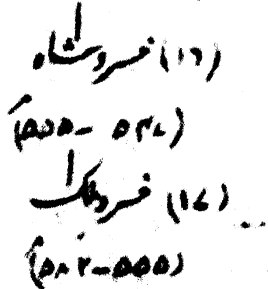 (۱۶) خسروشاہ
(۵۴۷ – ۵۵۵)
(۱۷) خسروملک
(۵۵۵ – ۵۸۲)